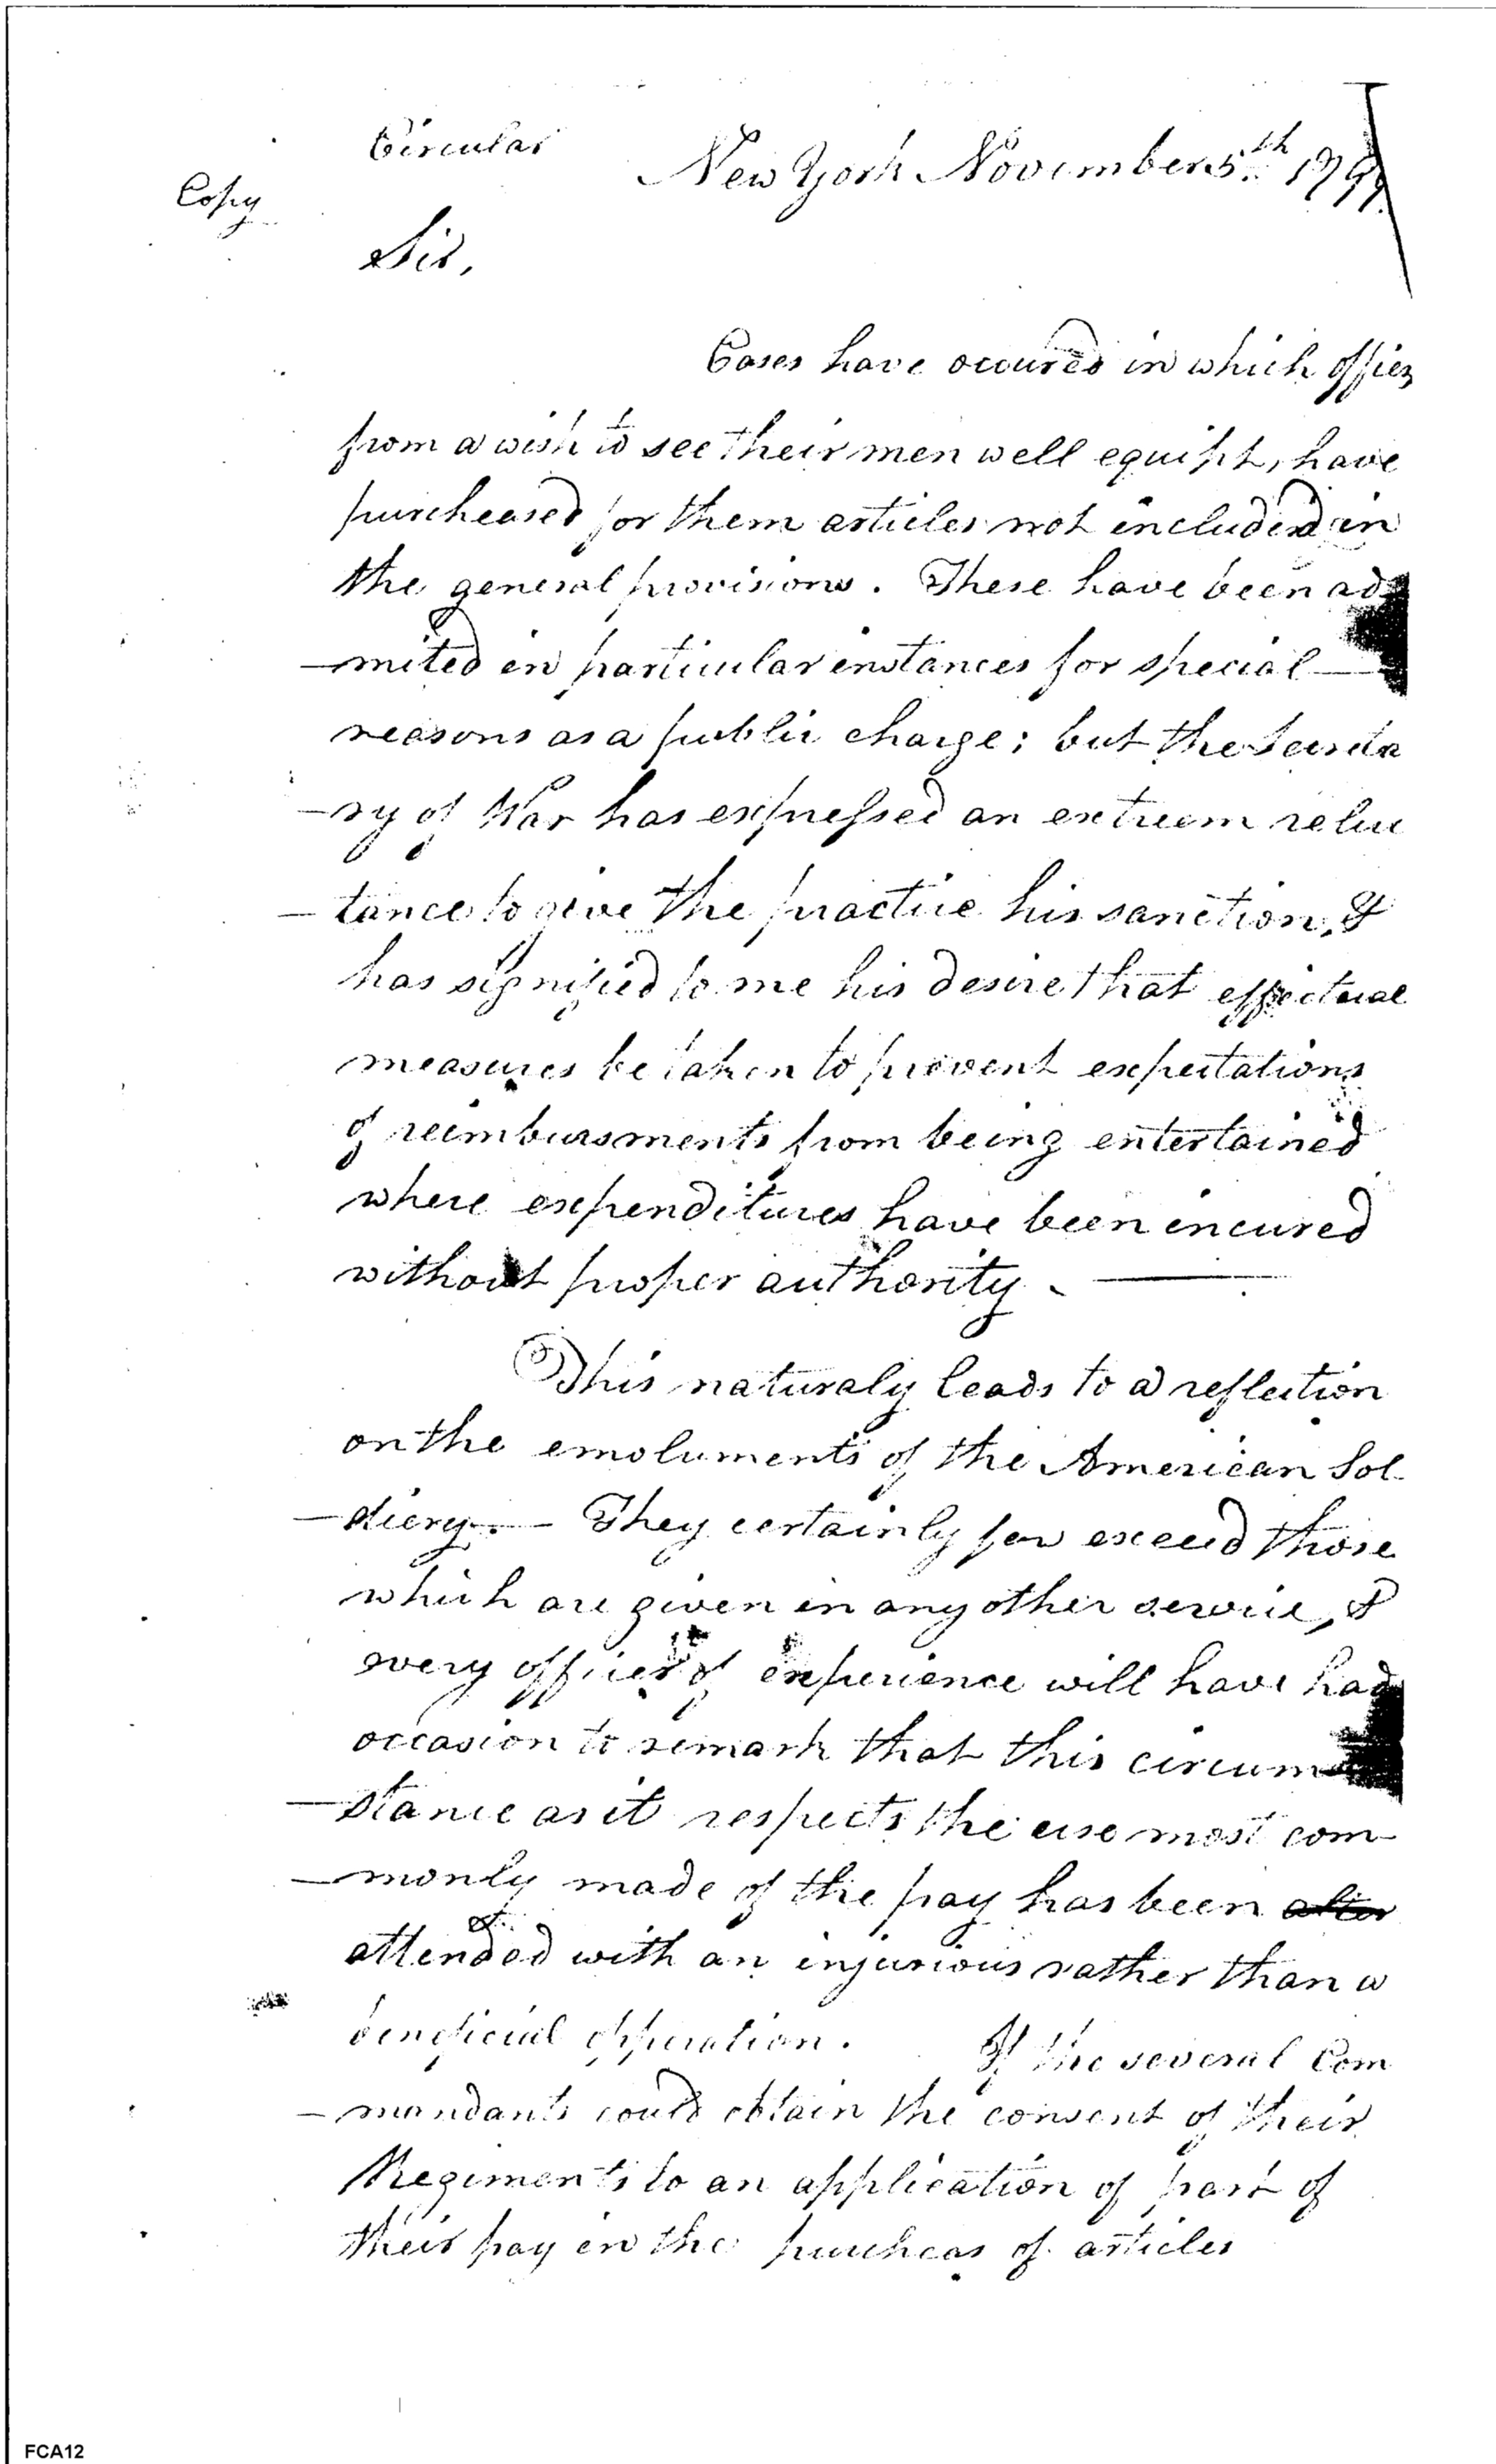 Circular
Copy
New York November 5.th 1799.
Sir,
Cases have occured in which offiers
from a wish to see their men well equipt, have
purcheased for them articles not included in
the general provisions. These have been ad
-mited in particular instances for special
reasons as a public charge; but the Secreta
-ry of War has expressed an extreem reluc
-tance to give the practice his sanction, &
has signified to me his desire that effectual
measures be taken to prevent expectations
of reimbursments from being entertained
where expenditures have been incured
without proper authority.
This naturaly leads to a reflection
on the emoluments of the American Sol
-diery.— They certainly far exceed those
which are given in any other service, &
every officer of experience will have had
occasion to remark that this circum
-stance as it respects the use most com-
-monly made of the pay has been
attended with an injurious rather than a
beneficial opperation. If the several Com
-mandants could obtain the consent of their
Regiments to an application of part of
their pay in the purcheas of articles
FCA12